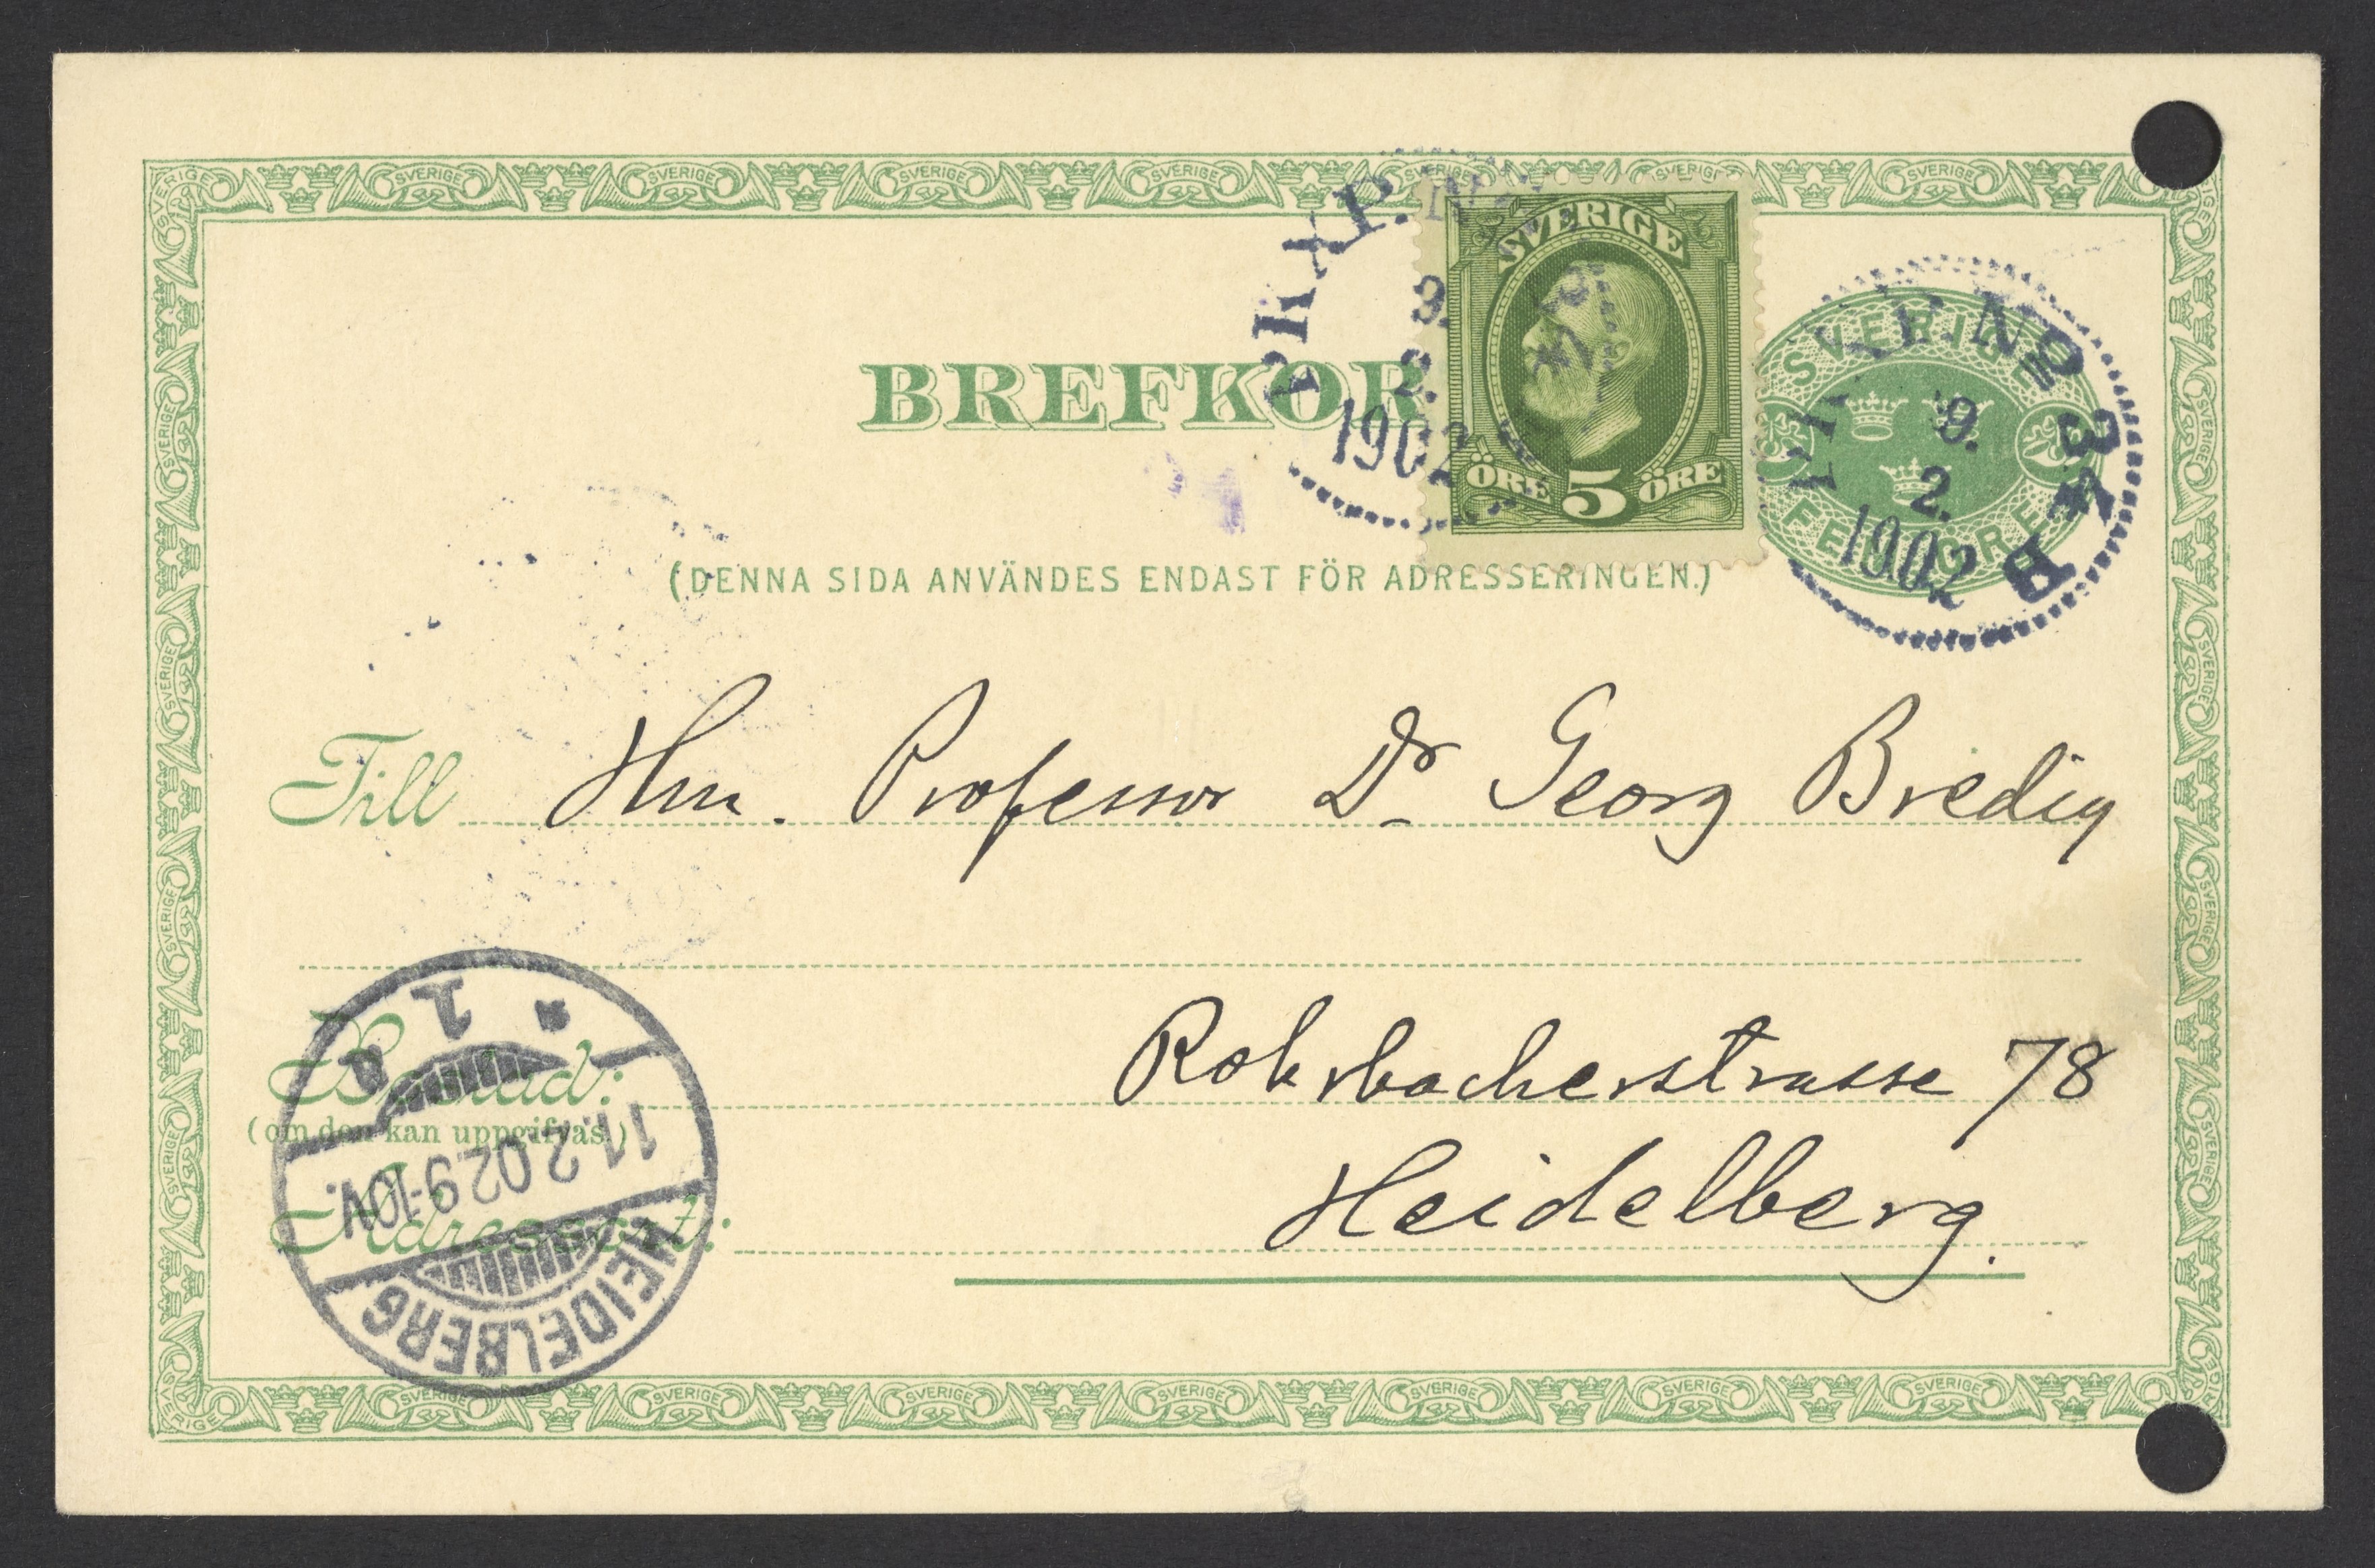 BREFKOR
SVERIGE
ÖRE 5 ÖRE
SVERIGE
FEM ÖRE
PKXP. N
9.
2.
1902
PKXP. No 34 B
9.
2.
1902
(DENNA SIDA ANVÄNDES ENDAST FÖR ADRESSERINGEN.)
Till Hrn. Professor Dr Georg Bredig
Bostad: Rohrbacherstrasse 78
(om den kan uppgifvas.)
Adressort: Heidelberg.
HEIDELBERG
11.2.02 9-10V.
* 1 a